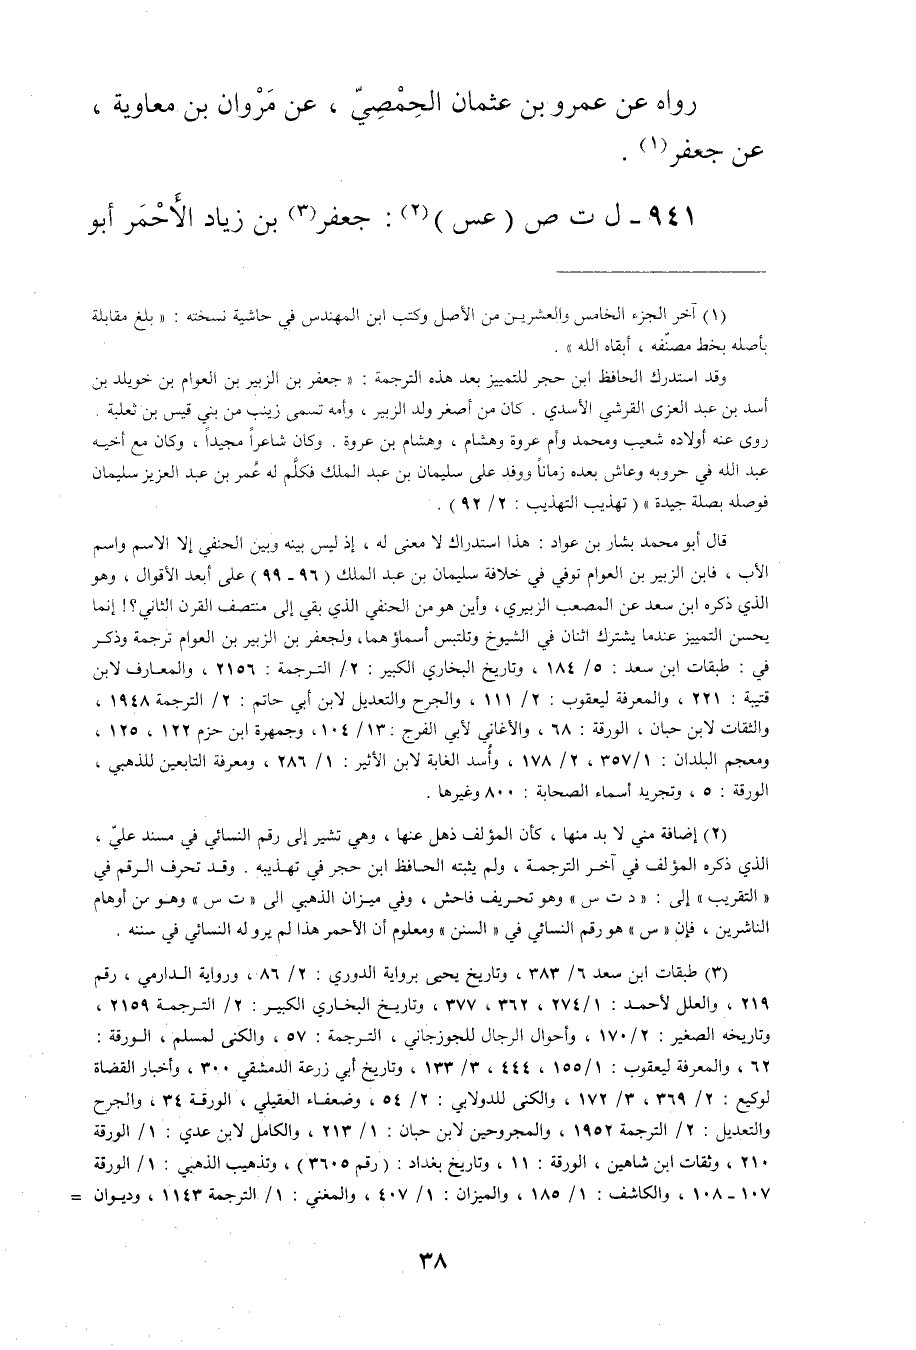 رواه عن عمرو بن عثمان الحِمْصِيّ ، عن مَرْوان بن معاوية ،
عن جعفر(١) .
٩٤١ - ل ت ص ( عس )(٢) : جعفر(٣) بن زياد الأَحْمَر أبو
(١) آخر الجزء الخامس والعشرين من الأصل وكتب ابن المهندس في حاشية نسخته : « بلغ مقابلة
بأصله بخط مصنّفه ، أبقاه الله » .
وقد استدرك الحافظ ابن حجر للتمييز بعد هذه الترجمة : « جعفر بن الزبير بن العوام بن خويلد بن
أسد بن عبد العزى القرشي الأسدي . كان من أصغر ولد الزبير ، وأمه تسمى زينب من بني قيس بن ثعلبة .
روى عنه أولاده شعيب ومحمد وأم عروة وهشام ، وهشام بن عروة . وكان شاعراً مجيداً ، وكان مع أخيه
عبد الله في حروبه وعاش بعده زماناً ووفد على سليمان بن عبد الملك فكلَّم له عُمر بن عبد العزيز سليمان
فوصله بصلة جيدة » ( تهذيب التهذيب : ٢/ ٩٢ ) .
قال أبو محمد بشار بن عواد : هذا استدراك لا معنى له ، إذ ليس بينه وبين الحنفي إلا الاسم واسم
الأب ، فابن الزبير بن العوام توفي في خلافة سليمان بن عبد الملك ( ٩٦ - ٩٩ ) على أبعد الأقوال ، وهو
الذي ذكره ابن سعد عن المصعب الزبيري، وأين هو من الحنفي الذي بقي إلى منتصف القرن الثاني؟! إنما
يحسن التمييز عندما يشترك اثنان في الشيوخ وتلتبس أسماؤهما، ولجعفر بن الزبير بن العوام ترجمة وذكر
في : طبقات ابن سعد : ٥/ ١٨٤ ، وتاريخ البخاري الكبير : ٢/ الترجمة : ٢١٥٦ ، والمعارف لابن
قتيبة : ٢٢١ ، والمعرفة ليعقوب : ٢/ ١١١ ، والجرح والتعديل لابن أبي حاتم : ٢/ الترجمة ١٩٤٨ ،
والثقات لابن حبان ، الورقة : ٦٨ ، والأغاني لأبي الفرج : ١٣/ ١٠٤ ، وجمهرة ابن حزم ١٢٢ ، ١٢٥ ،
ومعجم البلدان : ١/ ٣٥٧ ، ٢/ ١٧٨ ، وأُسد الغابة لابن الأثير : ١/ ٢٨٦ ، ومعرفة التابعين للذهبي ،
الورقة : ٥ ، وتجريد أسماء الصحابة : ٨٠٠ وغيرها .
(٢) إضافة مني لا بد منها ، كأن المؤلف ذهل عنها ، وهي تشير إلى رقم النسائي في مسند عليّ ،
الذي ذكره المؤلف في آخر الترجمة ، ولم يثبته الحافظ ابن حجر في تهذيبه . وقد تحرف الرقم في
« التقريب » إلى : « د ت س » وهو تحريف فاحش ، وفي ميزان الذهبي الى « ت س » وهو من أوهام
الناشرين ، فإن « س » هو رقم النسائي في « السنن » ومعلوم أن الأحمر هذا لم يرو له النسائي في سننه .
(٣) طبقات ابن سعد ٦/ ٣٨٣ ، وتاريخ يحيى برواية الدوري : ٢/ ٨٦ ، ورواية الدارمي ، رقم
٢١٩ ، والعلل لأحمد : ١/ ٢٧٤ ، ٣٦٢ ، ٣٧٧ ، وتاريخ البخاري الكبير : ٢/ الترجمة ٢١٥٩ ،
وتاريخه الصغير : ٢/ ١٧٠ ، وأحوال الرجال للجوزجاني ، الترجمة : ٥٧ ، والكنى لمسلم ، الورقة :
٦٢ ، والمعرفة ليعقوب : ١/ ١٥٥ ، ٤٤٤ ، ٣/ ١٣٣ ، وتاريخ أبي زرعة الدمشقي ٣٠٠ ، وأخبار القضاة
لوكيع : ٢/ ٣٦٩ ، ٣/ ١٧٢ ، والكنى للدولابي : ٢/ ٥٤ ، وضعفاء العقيلي ، الورقة ٣٤ ، والجرح
والتعديل : ٢/ الترجمة ١٩٥٢ ، والمجروحين لابن حبان : ١/ ٢١٣ ، والكامل لابن عدي : ١/ الورقة
٢١٠ ، وثقات ابن شاهين ، الورقة : ١١ ، وتاريخ بغداد : ( رقم ٣٦٠٥ ) ، وتذهيب الذهبي : ١/ الورقة
١٠٧ - ١٠٨ ، والكاشف : ١/ ١٨٥ ، والميزان : ١/ ٤٠٧ ، والمغني : ١/ الترجمة ١١٤٣ ، وديوان =
٣٨